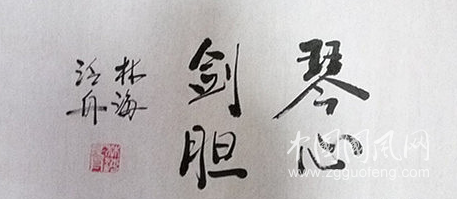 琴心
剑胆
林海
泛舟
中国国风网
www.zgguofeng.com